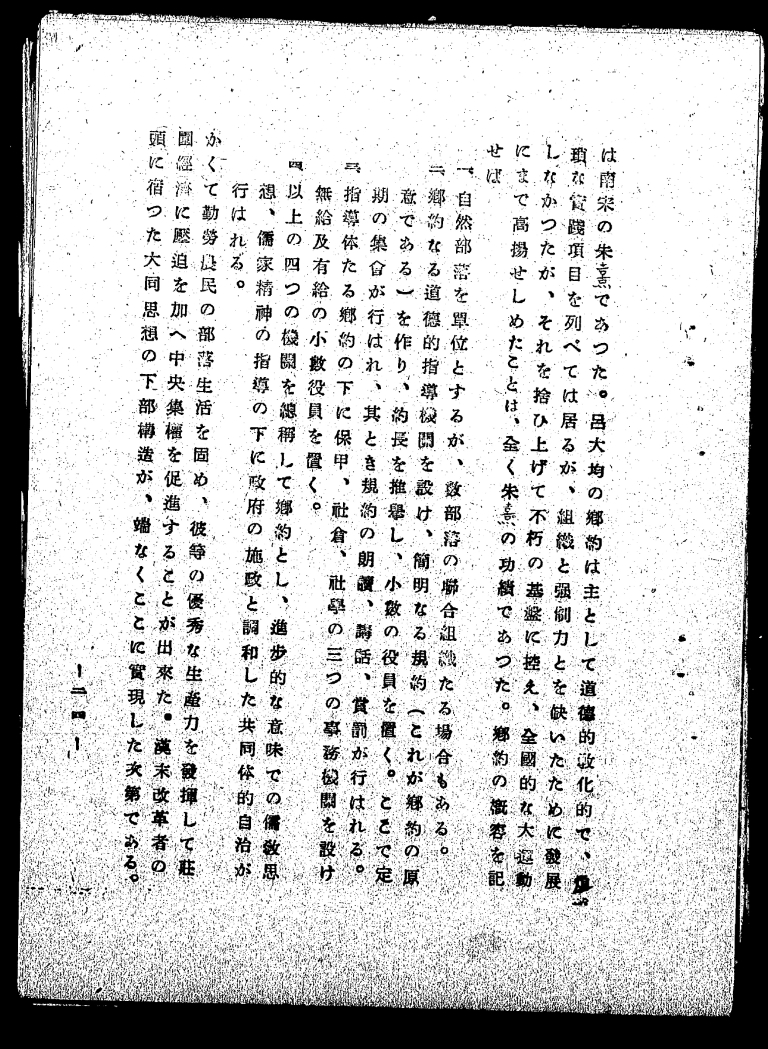 は南宋の朱熹であつた。呂大均の鄉約は主として道德的敎化的で、
瑣な實踐項目を列べては居るが、組織と强制力とを缺いたために發展
しなかつたが、それを拾ひ上げて不朽の基盤に控え、全國的な大運動
にまで高揚せしめたことは、全く朱熹の功績であつた。鄉約の槪容を記
せば
一、自然部落を單位とするが、數部落の聯合組織たる場合もある。
二、鄉約なる道德的指導機關を設け、簡明なる規約（これが鄉約の原
意である）を作り、約長を推擧し、小數の役員を置く。ここで定
期の集會が行はれ、其とき規約の朗讀、講話、賞罰が行はれる。
三、指導体たる鄉約の下に保甲、社倉、社學の三つの事務機關を設け
無給及有給の小數役員を置く。
四、以上の四つの機關を總稱して鄉約とし、進步的な意味での儒敎思
想、儒家精神の指導の下に政府の施政と調和した共同体的自治が
行はれる。
かくて勤勞農民の部落生活を固め、彼等の優秀な生產力を發揮して莊
園經濟に壓迫を加へ中央集權を促進することが出來た。漢末改革者の
頭に宿つた大同思想の下部構造が、端なくここに實現した次第である。
—二四—